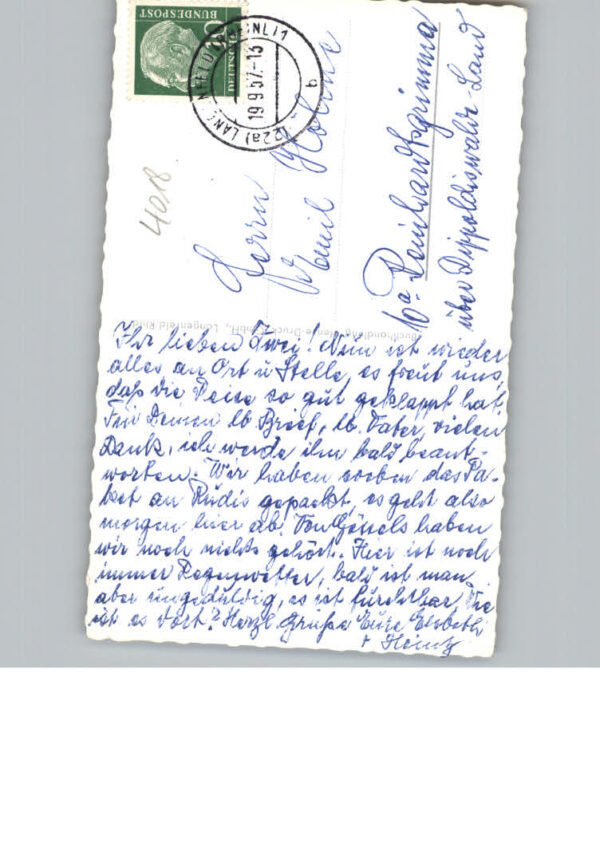 BUNDESPOST
(22a) LANGENFELD (RHEINL) 1
19.9.57.-13
b
4018
Herrn
Emil
10a Reinhardtsgrimma
über Dippoldiswalde-Land
Buchhandlung Druck GmbH., Langenfeld Rhld.
Ihr lieben Zwei! Nun ist wieder
alles an Ort u Stelle, es freut uns,
daß die Reise so gut geklappt hat.
Für Deinen lb Brief, lb. Vater, vielen
Dank, ich werde ihn bald beant-
worten. Wir haben soeben das Pa-
ket an Rudis gepackt, es geht also
morgen hier ab. Von haben
wir noch nichts gehört. Hier ist noch
immer Regenwetter, bald ist man
aber ungeduldig, es ist furchtbar. Wie
ist es dort? Herzl Grüße Eure Elsbeth
+ Heinz